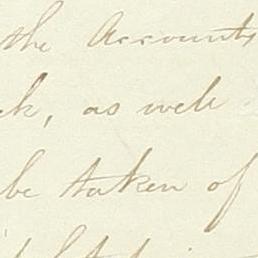 the Accounts
ck, as well
be taken of